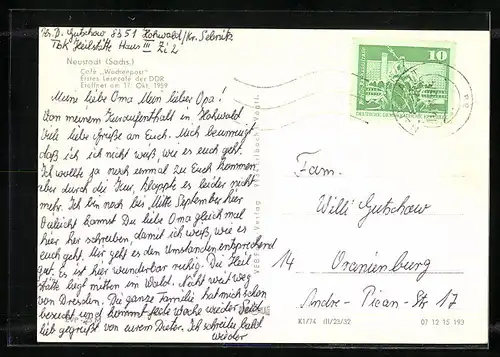 Abs. D. Gutschow 8351 Hohwald/Kr. Sebnitz
TbK Heilstätte Haus III Zi 2
Neustadt (Sachs.)
Café „Wochenpost"
Erstes Lesecafé der DDR
Eröffnet am 11. Okt. 1959
Meine liebe Oma Mein lieber Opa!
Von meinem Kuraufenthalt in Hohwald
viele liebe Grüße an Euch. Mich beunruhigt
daß ich nicht weiß, wie es euch geht.
Ich wollte ja noch einmal zu Euch kommen
aber durch die Kur, klappte es leider nicht
mehr. Ich bin noch bis Mitte September hier
Vielleicht kannst Du liebe Oma gleich mal
hier her schreiben, damit ich weiß, wie es
euch geht. Mir geht es den Umständen entsprechend
gut. Es ist hier wunderbar ruhig. Die Heil
stätte liegt mitten im Wald. Nicht weit weg
von Dresden. Die ganze Familie hat mich schon
besucht und kommt jede Woche wieder. Seid
lieb gegrüßt von eurem Dieter. Ich schreibe bald
wieder
10
Fam.
Willi Gutschow
14 Oranienburg
André-Pican-Str 17
K1/74 III/23/32 07 12 15 193